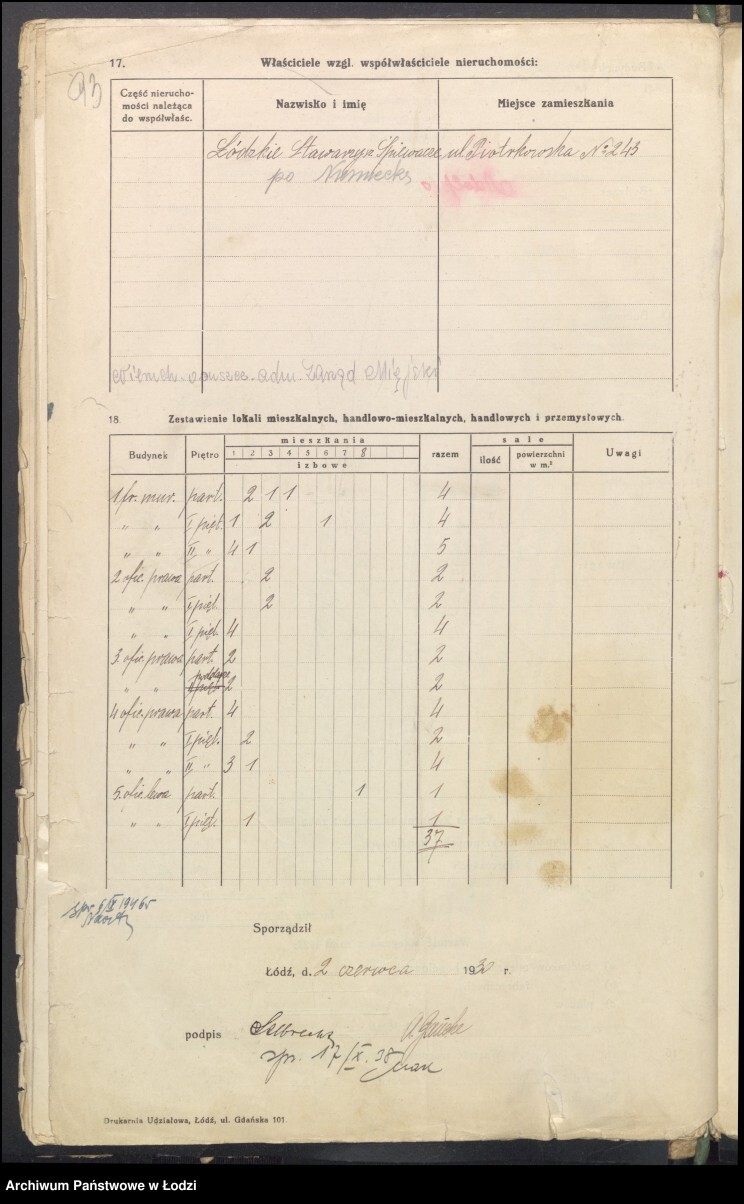 93
17. Właściciele wzgl. współwłaściciele nieruchomości:
Część nierucho-
mości należąca
do współwłaśc.
Nazwisko i imię
Miejsce zamieszkania
Łódzkie Stowarzysz. Śpiewacze ul. Piotrkowska № 243
po Niemiecku
adm. Zarząd Miejski
18. Zestawienie lokali mieszkalnych, handlowo-mieszkalnych, handlowych i przemysłowych.
Budynek Piętro mieszkania razem sale Uwagi
1 2 3 4 5 6 7 8 ilość powierzchni
w m.²
izbowe
1 fr. mur. part. 2 1 1 4
" " I pięt. 1 2 1 4
" " II " 4 1 5
2 ofic. prawa part. 2 2
" " I pięt. 2 2
" " I pięt. 4 4
3 ofic. prawa part. 2 2
" " 2 2
4 ofic. prawa part. 4 4
" " I pięt. 2 2
" " II " 3 1 4
5. ofic. lewa part. 1 1
" " I pięt. 1 1
37
spr. 6/IX 1946
Sporządził
Łódź, d. 2 czerwca 1930 r.
podpis
spr. 17/X. 38
Drukarnia Udziałowa, Łódź, ul. Gdańska 101.
Archiwum Państwowe w Łodzi